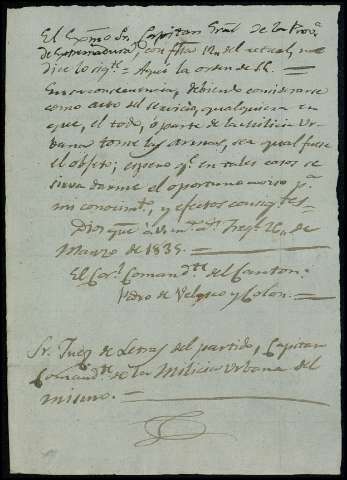 El Exmo Sr. Capitan Gral de la Prova
de Extremadura, con fha 12 del actual, me
dice lo sigte = Aqui la orden de S.E. =
En su consecuencia, debiendo considerarse
como acto del servicio, qualquiera en
que, el todo, ó parte de la Milicia Ur-
bana tome las armas, sea qual fuese
el objeto; espero qe en tales casos se
sirva darme el oportuno aviso pa
mi conocimto, y efectos consigtes =
Dios gue á V. ms. as. 26 de
Marzo de 1835. =
El Corl Comandte del Canton =
Pedro de Velasco y Colon. =
Sr. Juez de Letras del partido, Capitan
Comandte de la Milicia Urbana del
mismo. =